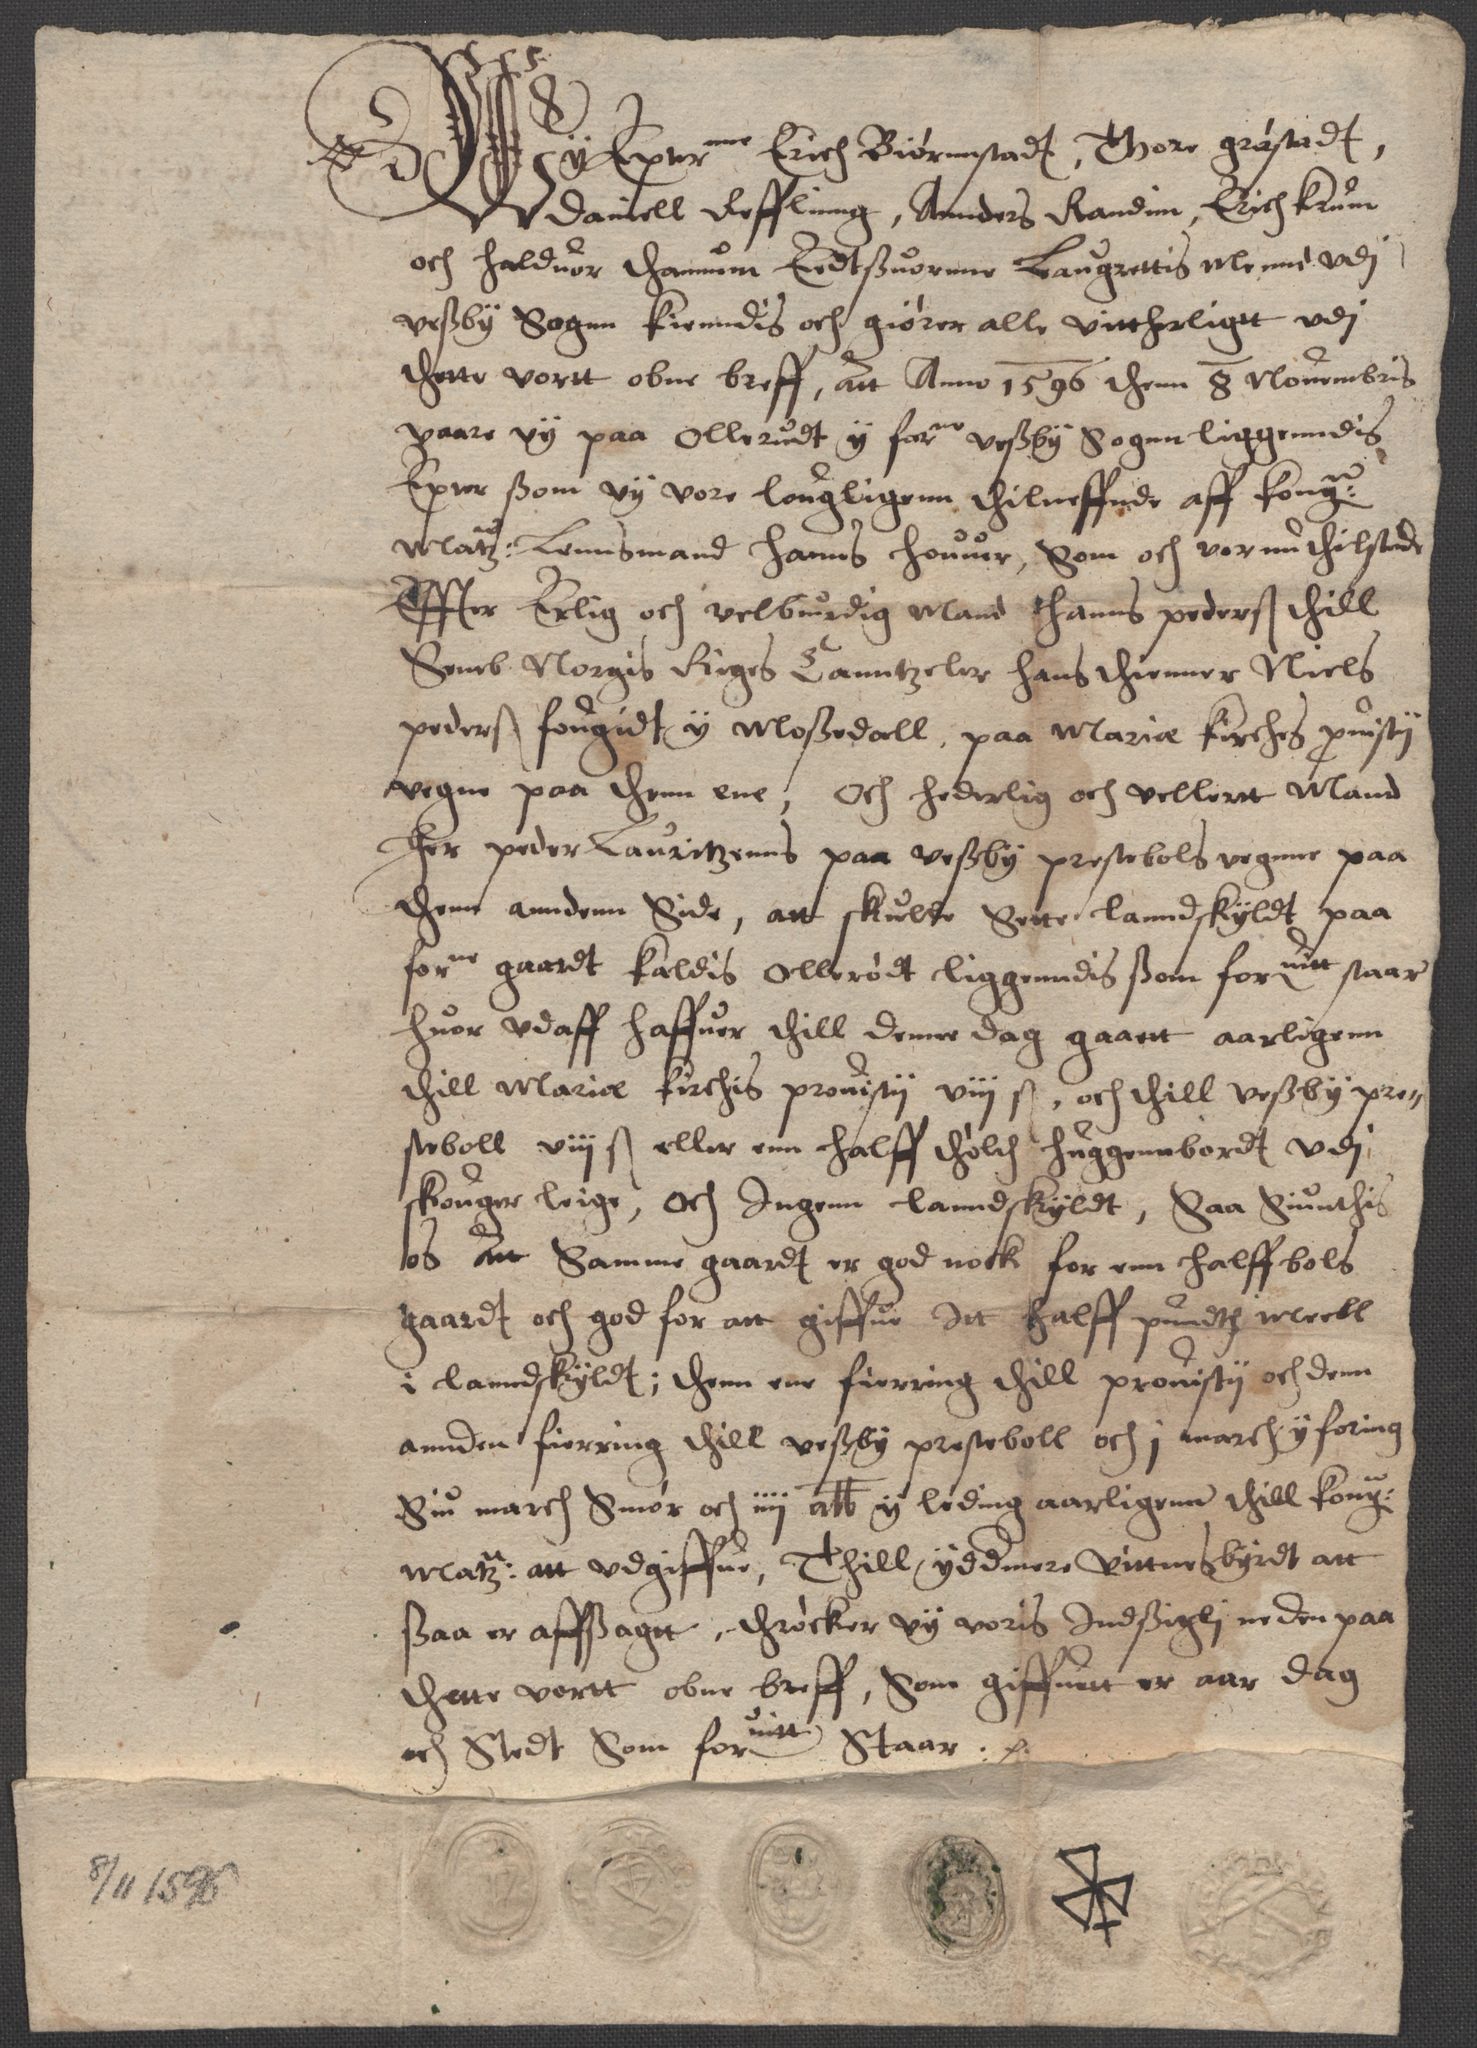 Wÿ Epter.ne Erich Biórnstadt, Thore gróstadt,
Daniell Refflinng, Annders Randim, Erich krum
och halduor thannum Eedtßuornne Laugrettis Mennd vdj
veßbÿ Sognn kienndis och giórer alle vittherligtt vdj
thette vortt obne breff, Att Anno 1596 thenn 8 Nouembris
vaare vÿ paa Ollerudt ÿ for.ne veßbÿ Sogen liggenndis
Epter ßom vÿ vore lougligenn thilneffnde aff kong:
Matz: Lennsmand hanns houuer, Som och vor nu thilstede
Effter Erlig och velbiurdig Mand hanns pederß thill
Semb Norgis Riges Canntzeler hans thienner Niels
pederß fougidt ÿ Moßedall, paa Mariæ kirches prouistij
vegne paa thenn ene, Och hederlig och vellertt Mand
Her peder Lauritzenns paa veßbÿ prestebols vegnne paa
thenn anndenn Side, att skulle Sette lanndskÿldt paa
for.ne gaardt kaldis Ollerödt liggenndis ßom foruitt staar
huor vdaff haffuer thill denne dag gaaett aarligenn
thill Mariæ kirchis prouistij viij ß, och thill veßbÿ pre„
steboll viij ß eller enn halff thólch huggennbordt vdj
skouger leige, Och Ingenn lanndskÿldt, Saa Siunthis
os Att Samme gaardt er god nock for enn halffbols
gaardt och god for att giffue Itt halff pundtz Meell
i lanndskÿldt; thenn ene fierring thill prouistij och denn
annden fierring thill veßbÿ presteboll och j march ÿ foring
Siu march Smór och iiij alb ÿ leding aarligenn thill kong:
Matz: att vdgiffue, Thill ÿddmere Vittnesbÿrdt att
ßaa er affßagtt, thröcker vÿ voris Indßiglj neden paa
thette vortt obne breff, Som giffuett er aar dag
och Stedt Som foruitt Staar.
8/11 1596